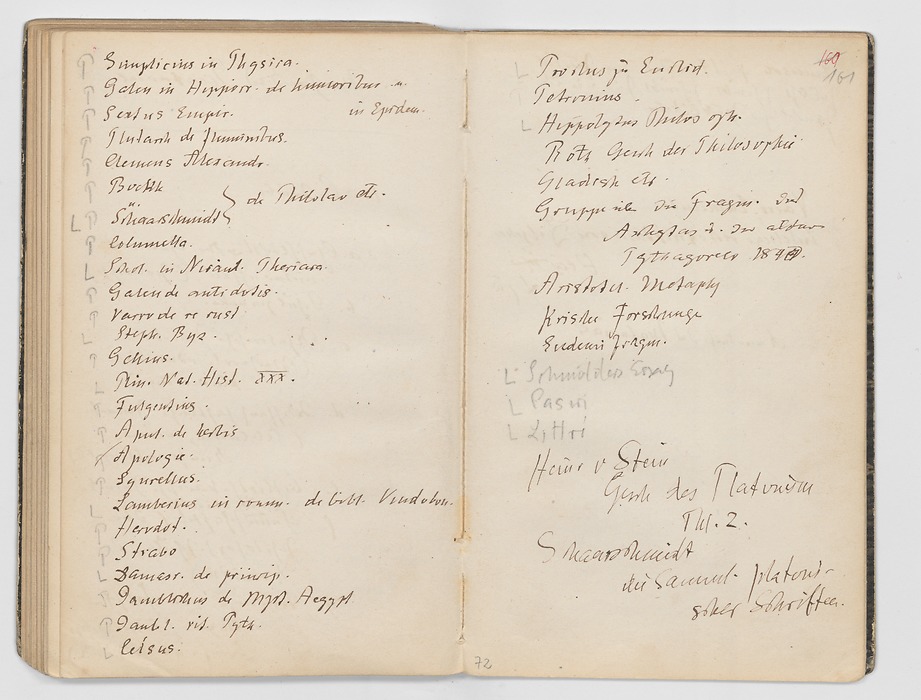 Simplicius in Physica.
Galen in Hippocr. de humoribus u.
Sextus Empir. in Epidem.
Plutarch de fluminibus.
Clemens Alexandr.
Boeckh
u. } de Philolao etc.
Schaarschmidt
Columella.
Schol. in Nicand. Theriaca.
Galen de antidotis.
Varro de re rust
Steph. Byz.
Gellius.
Plin. Nat. Hist. XXX.
Fulgentius.
Apul. de herbis
Apologie.
Lambecius in comm. de bibl. Vindobon.
Herodot.
Strabo
Damasc. de princip.
Jamblichus de Myst. Aegypt.
Jambl. vit. Pyth.
Celsus.
160
161
L Proclus zu Euclid.
Petronius.
L Hippolytus Philosoph.
Röth Gesch der Philosophie
Gladisch etc.
Gruppe üb. die Fragm. des
Archytas u. der ältern
Pythagoreer 1840.
Aristotel. Metaph
Krische Forschunge
Eudemi fragm.
L Schmidders Essay
L
L Littré
Heinr v Stein
Gesch des Platonism
Thl. 2.
Schaarschmidt
die Samml. platoni-
scher Schriften.
72